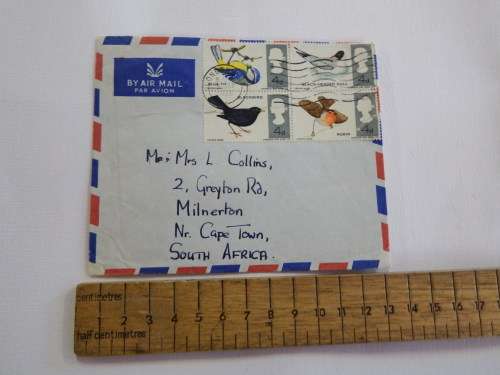 BY AIR MAIL
PAR AVION
4d
4d
BLACK-HEADED GULL
BLACKBIRD
4d
4d
ROBIN
Mr & Mrs L Collins,
2, Greyton Rd,
Milnerton
Nr. Cape Town,
SOUTH AFRICA.
centimetres
1 2 3 4 5 6 7 8 9 10 11 12 13 14 15 16 17
half centimetres